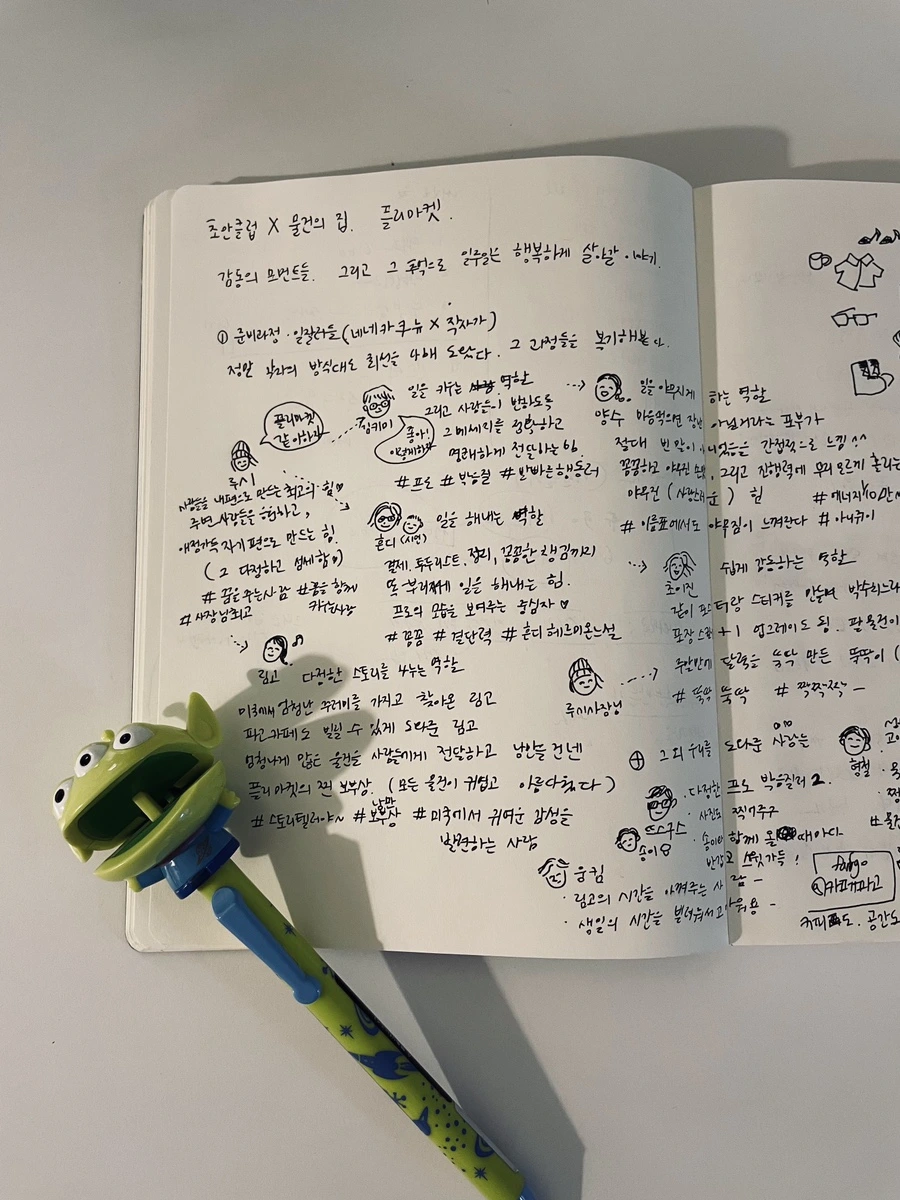 초안클럽 X 물건의 집. 플리마켓.
감동의 모먼트들. 그리고 그 추억으로 일주일는 행복하게 살아갈 이야기.
① 준비과정·일잘러들 (네네카쿠뉴 X 작사가)
정말 각자의 방식대로 최선을 다해 도왔다. 그 과정들을 복기해본다.
플리마켓
같이하자
루시
사람을 내편으로 만드는 최고의 힘♡
주변 사람들을 포함하고,
애정가득 자기 편으로 만드는 힘.
(그 다정하고 섬세함이)
#꿈을 주는사람 #꿈을 함께
#사장님최고 키우는사람
킴키미
좋아!
이렇게하자
일을 키우는 역할
그리고 사람들이 변하도록
그 메세지를 명확하고
명쾌하게 전달하는 힘.
#프로 #박능률 #발빠른행동러
흔디(시언)
일을 해내는 역할
결제, 투두리스트, 정리, 꼼꼼한 챙김까지
또 부러지게 일을 해내는 힘.
프로의 모습을 보여주는 중심자♡
#꼼꼼 #결단력 #흔디 헤르미온느설
림고
다정한 스토리를 나누는 역할
미국에서 엄청난 꾸러미를 가지고 찾아온 림고
파고카페도 빌릴 수 있게 도와준 림고
엄청나게 많은 물건을 사람들에게 전달하고 낭만을 건넨
플리마켓의 찐 보부상. (모든 물건이 귀엽고 아름다웠다)
#스토리텔러야~ #낭만보부상 #미국에서 귀여운 감성을
발견하는 사람
일을 야무지게 하는 역할
양수 마음먹으면 장난 아닐거라는 포부가
절대 빈말이 아니었음을 간접적으로 느낌^^
꼼꼼하고 야무진 모습, 그리고 진행력에 우리 모르게 흔리는
야무진 (사랑스러운) 힘 #에너지
#이름표에서도 야무짐이 느껴진다 #아니쥬이
초이진
쉽게 감동하는 역할
같이 포스터랑 스티커를 만들며 박수치느라
포장 스킬 +1 업그레이드 됨.
루시사장님
주말만에 달력을 뚝딱 만든 뚝딱이 (
#뚝딱뚝딱 #짝짝짝-
⊕ 그외 우리를 도와준 사람들은
뜨스쿠스
· 다정한 프로 박응질러 2.
· 사진도 찍어주구
송이
· 송이와 함께
반갑고 스윗가득!
형철
웅킴
· 림고의 시간을 아껴주는 사람-
· 생일의 시간을 빌려줘서 고마워용-
fargo
@카페파고
커피도. 공간도